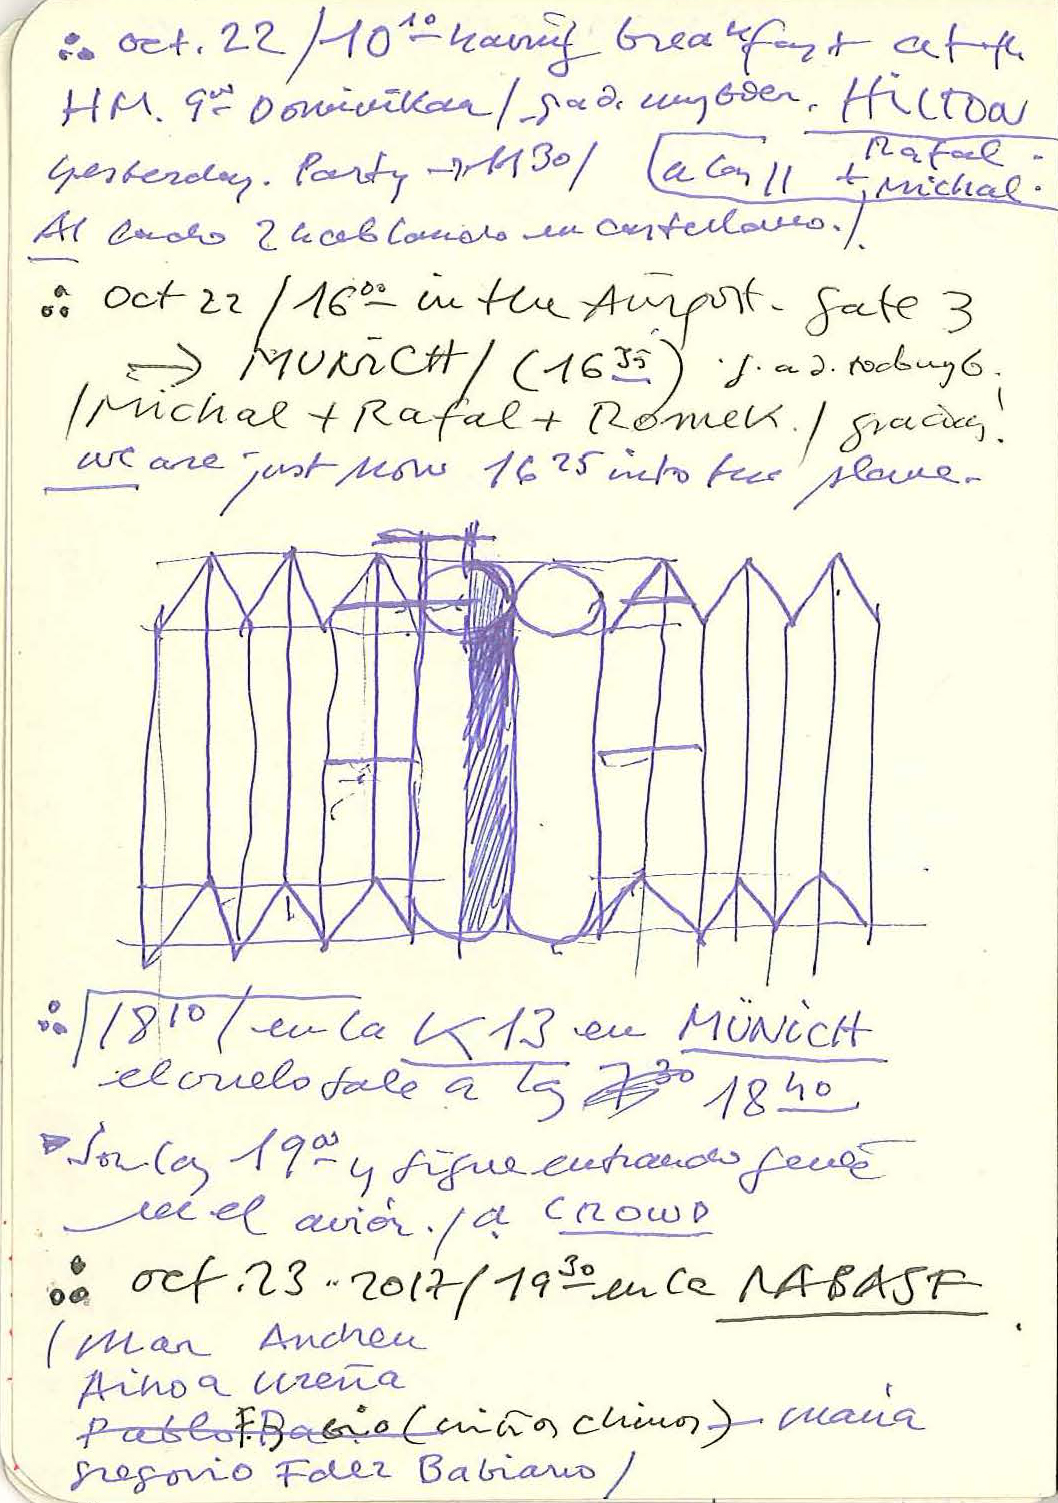 oct. 22 / 10 10 having breakfast at the
HM. 9 00 Dominikan / HILTON
yesterday. Party → 11 30 / a las 11 + Rafal
+ Michal.
Al lado 2 hablando en castellano. /.
oct 22 / 16 00 in the Airport. gate 3
⇒ MUNICH / (16 35)
/ Michal + Rafal + Romek. / gracias!
we are just now 16 25 into the plane.
18 10 / en la K13 en MÜNICH
el vuelo sale a las 7 30 18 40
Son las 19 00 y sigue entrando gente
en el avión. / a CROWD
oct. 23 .. 2017 / 19 30 en la NABASF
( Mar Andreu
Ainoa Ureña
Pablo (niños chinos) María
gregorio Fdez Babiano /